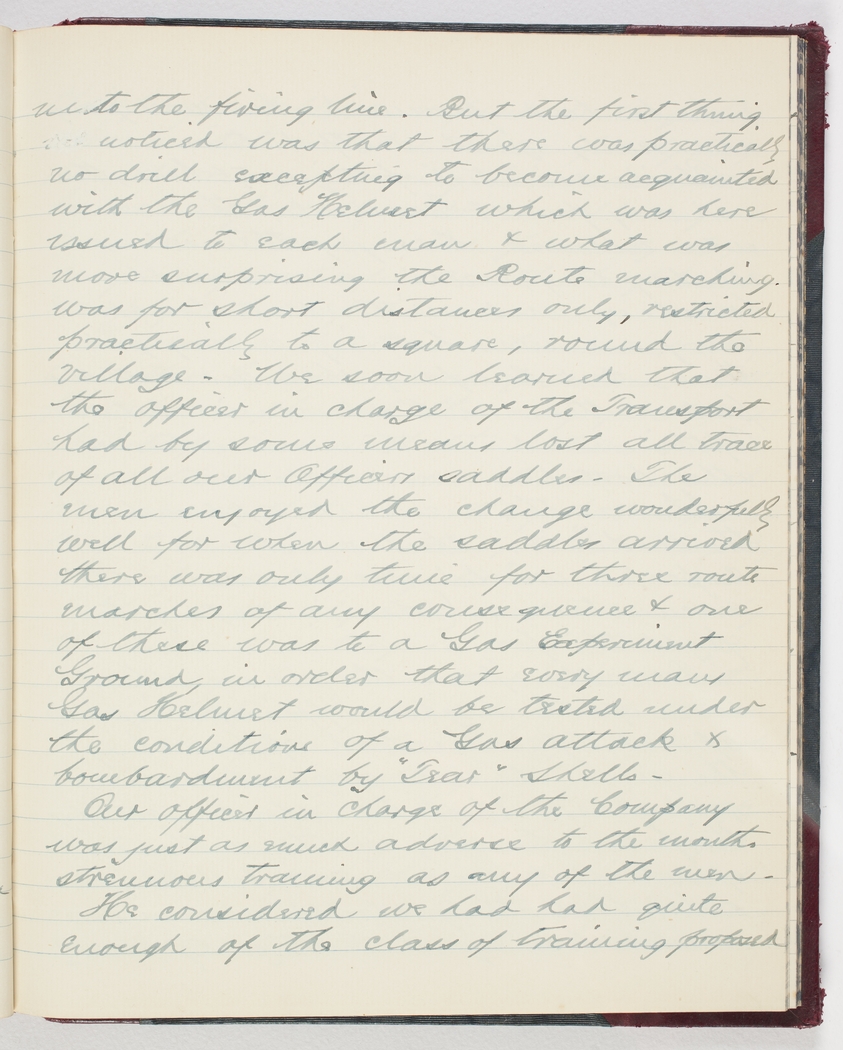 us to the firing line. But the first thing
noticed was that there was practically
no drill excepting to become acquainted
with the Gas Helmet which was here
issued to each man & what was
more surprising the Route marching.
was for short distances only, restricted
practically to a square, round the
village - We soon learned that
the officer in charge of the Transport
had by some means lost all trace
of all our Officers saddles - The
men enjoyed the change wonderfully
well for when the saddles arrived
there was only time for three route
marches of any consequence & one
of these was to a Gas Experiment
Ground, in order that every mans
Gas Helmet would be tested under
the conditions of a Gas attack &
bombardment by "Tear" Shells -
Our officer in charge of the Company
was just as much adverse to the months
strenuous training as any of the men -
He considered we had had quite
enough of the class of training proposed